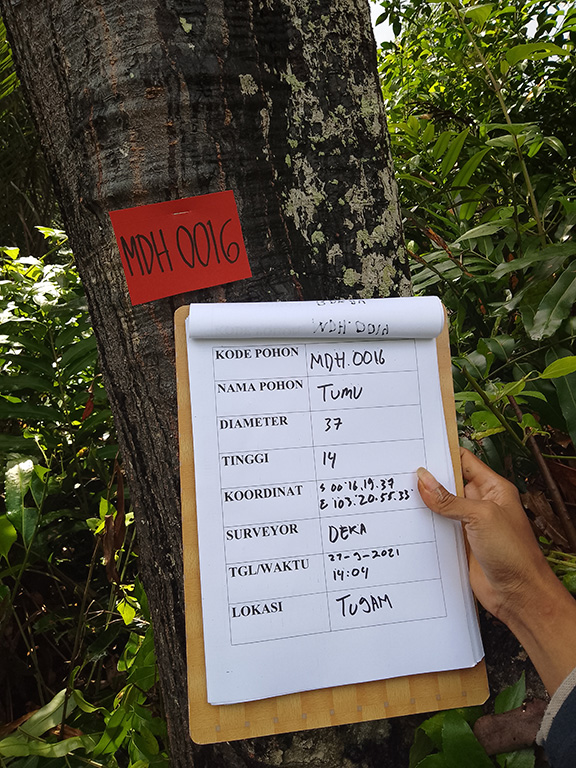 MDH 0016
MDH.0016
KODE POHON MDH.0016
NAMA POHON TUMU
DIAMETER 37
TINGGI 14
KOORDINAT S 00°16.19.37
E 103.20.55.33"
SURVEYOR DEKA
TGL/WAKTU 27-9-2021
14:04
LOKASI TUGAM